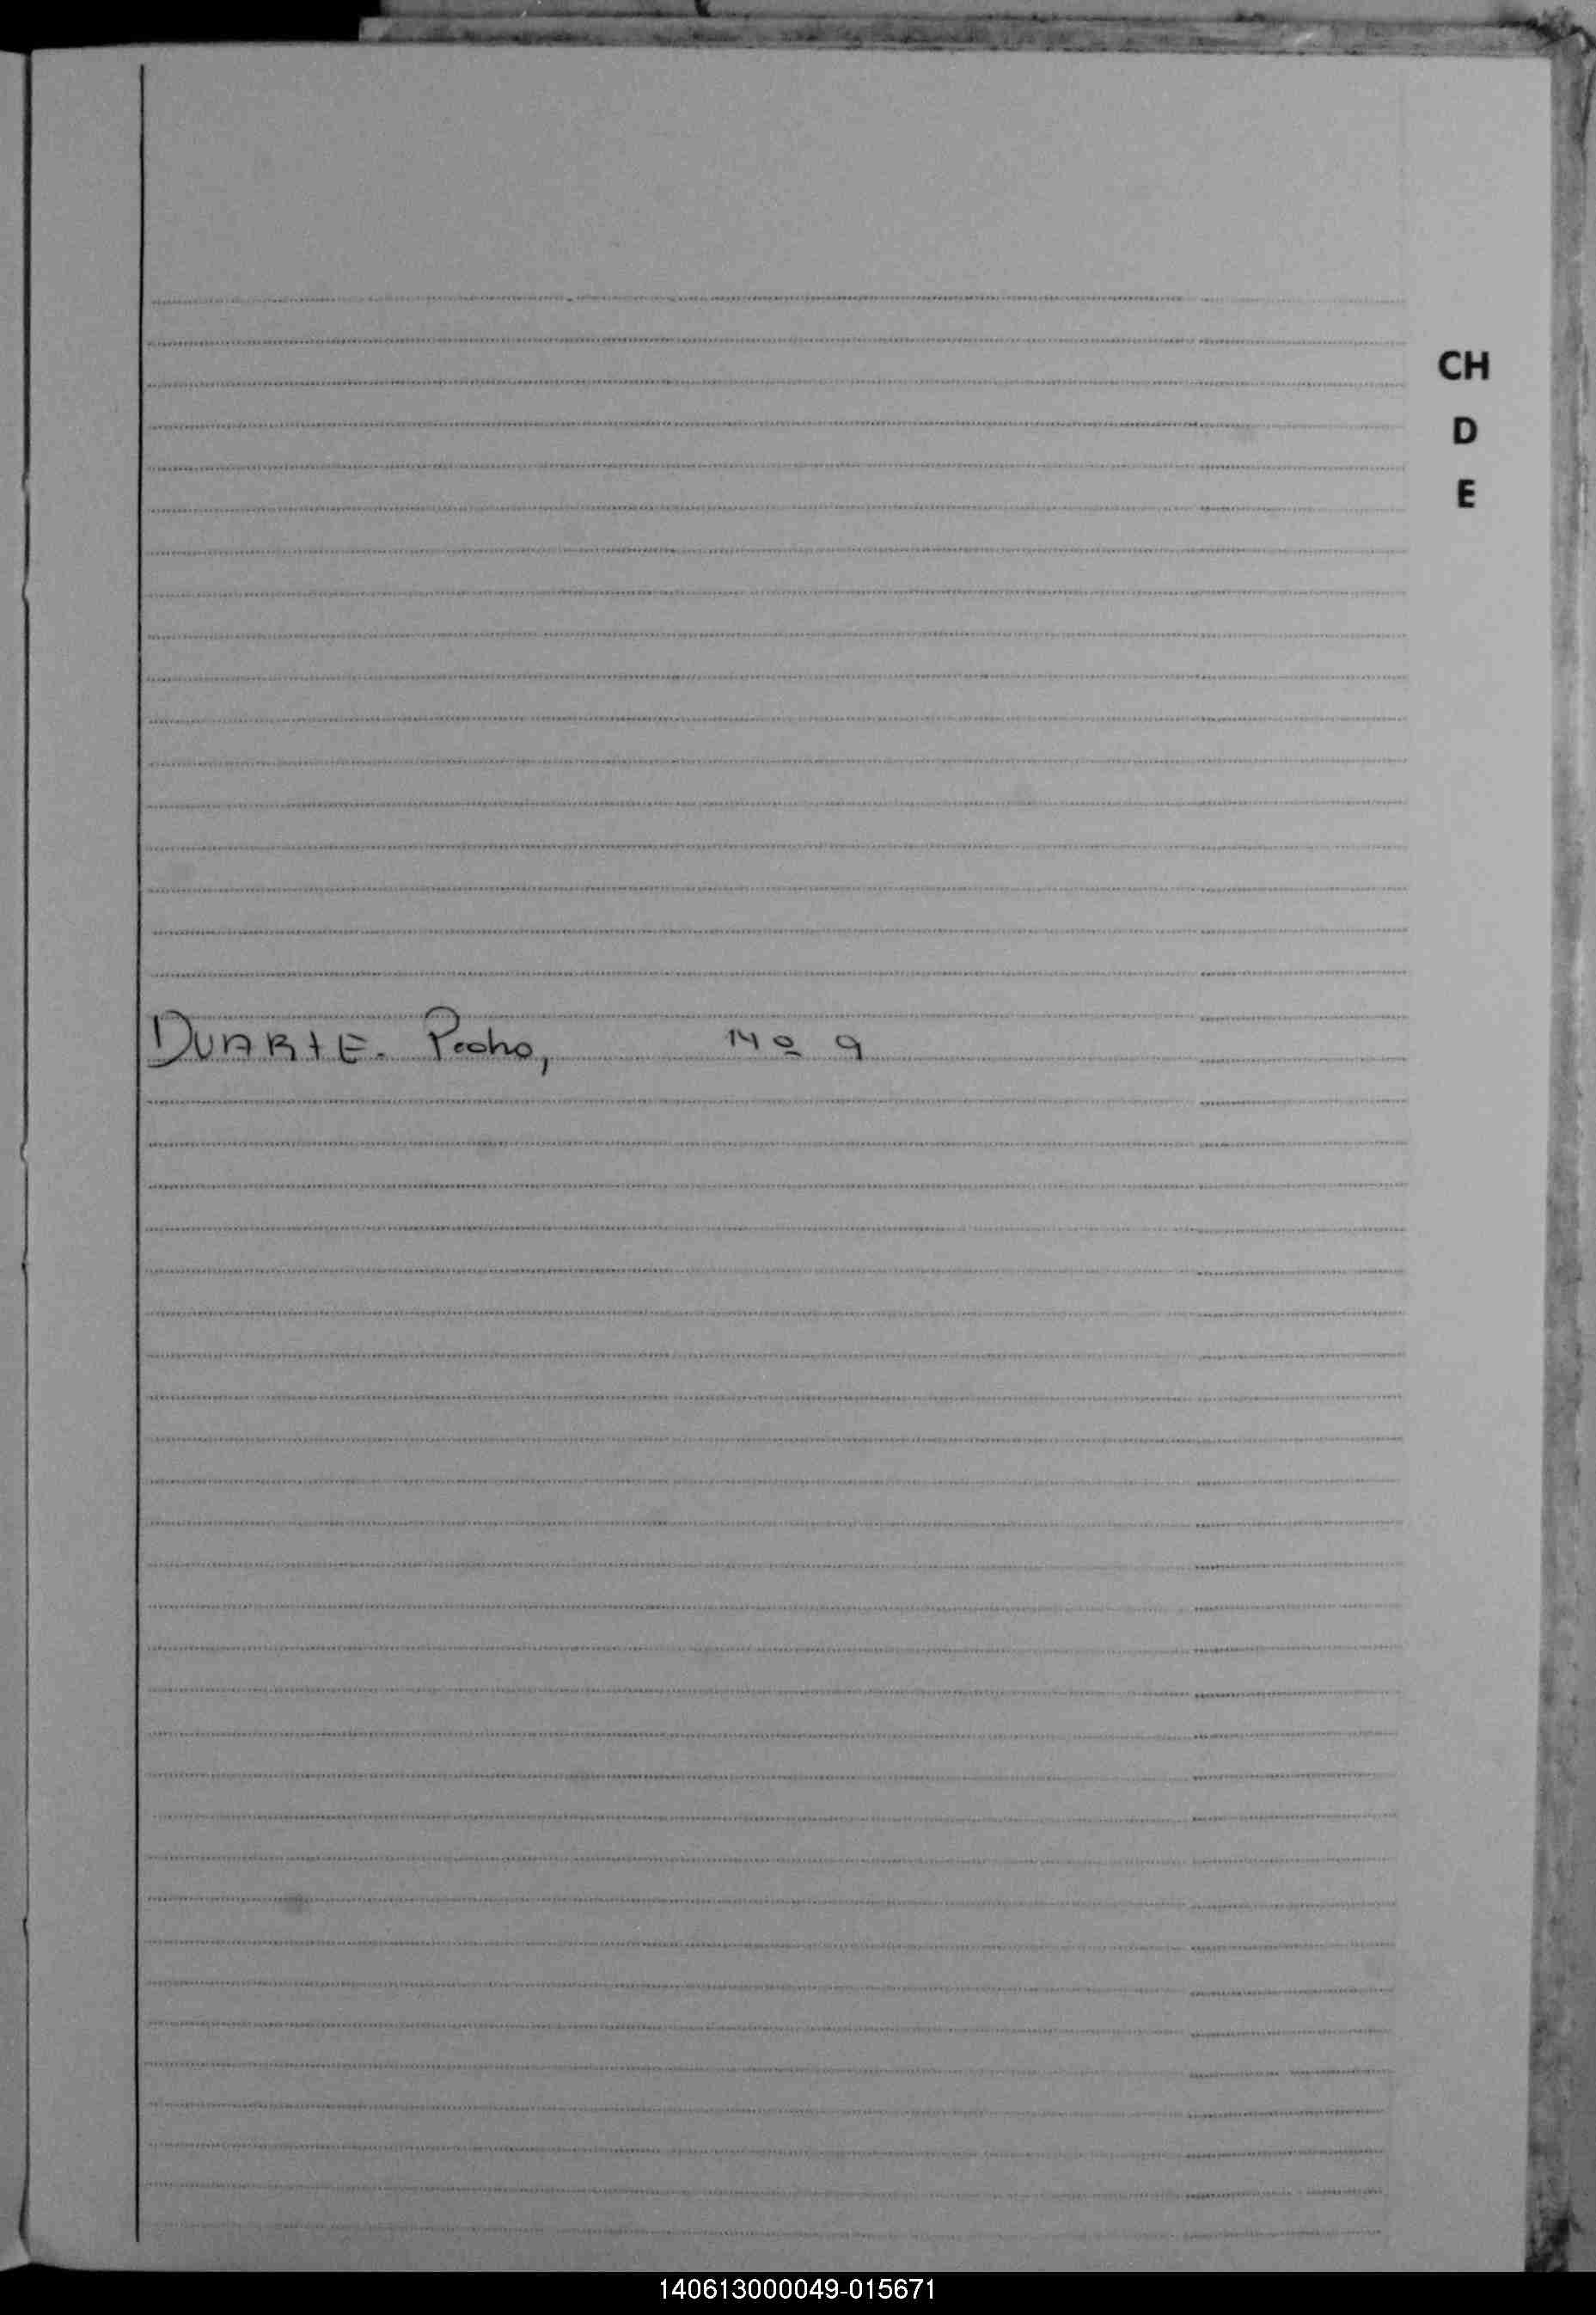 CH
D
E
DUARTE. Pedro, Nº 9
140613000049-015671